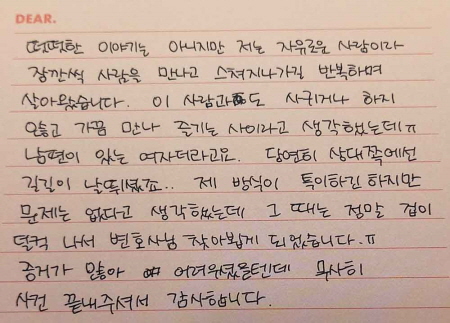 DEAR.
떳떳한 이야기는 아니지만 저는 자유로운 사람이라
잠깐씩 사람을 만나고 스쳐지나가길 반복하며
살아왔습니다. 이 사람과도 사귀거나 하지
않고 가끔 만나 즐기는 사이라고 생각했는데ㅠ
남편이 있는 여자더라고요. 당연히 상대쪽에선
길길이 날뛰셨죠.. 제 방식이 특이하긴 하지만
문제는 없다고 생각했는데 그 때는 정말 겁이
덜컥 나서 변호사님 찾아뵙게 되었습니다.ㅠ
증거가 많아 어려우셨을텐데 무사히
사건 끝내주셔서 감사합니다.